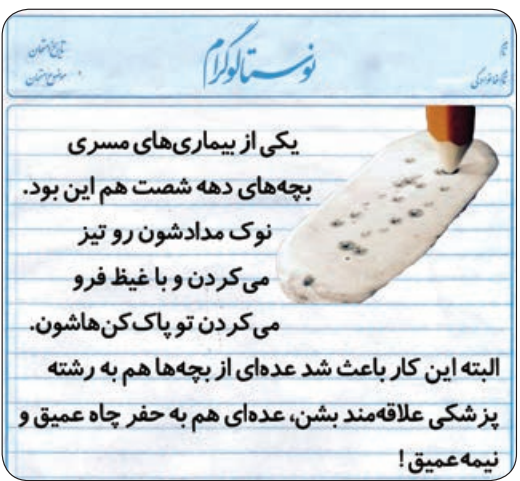 نام
نوستالوگرام
تاریخ امتحان
نام خانوادگی
موضوع امتحان
یکی از بیماری‌های مسری
بچه‌های دهه شصت هم این بود.
نوک مدادشون رو تیز
می‌کردن و با غیظ فرو
می‌کردن تو پاک‌کن‌هاشون.
البته این کار باعث شد عده‌ای از بچه‌ها هم به رشته
پزشکی علاقه‌مند بشن، عده‌ای هم به حفر چاه عمیق و
نیمه عمیق!